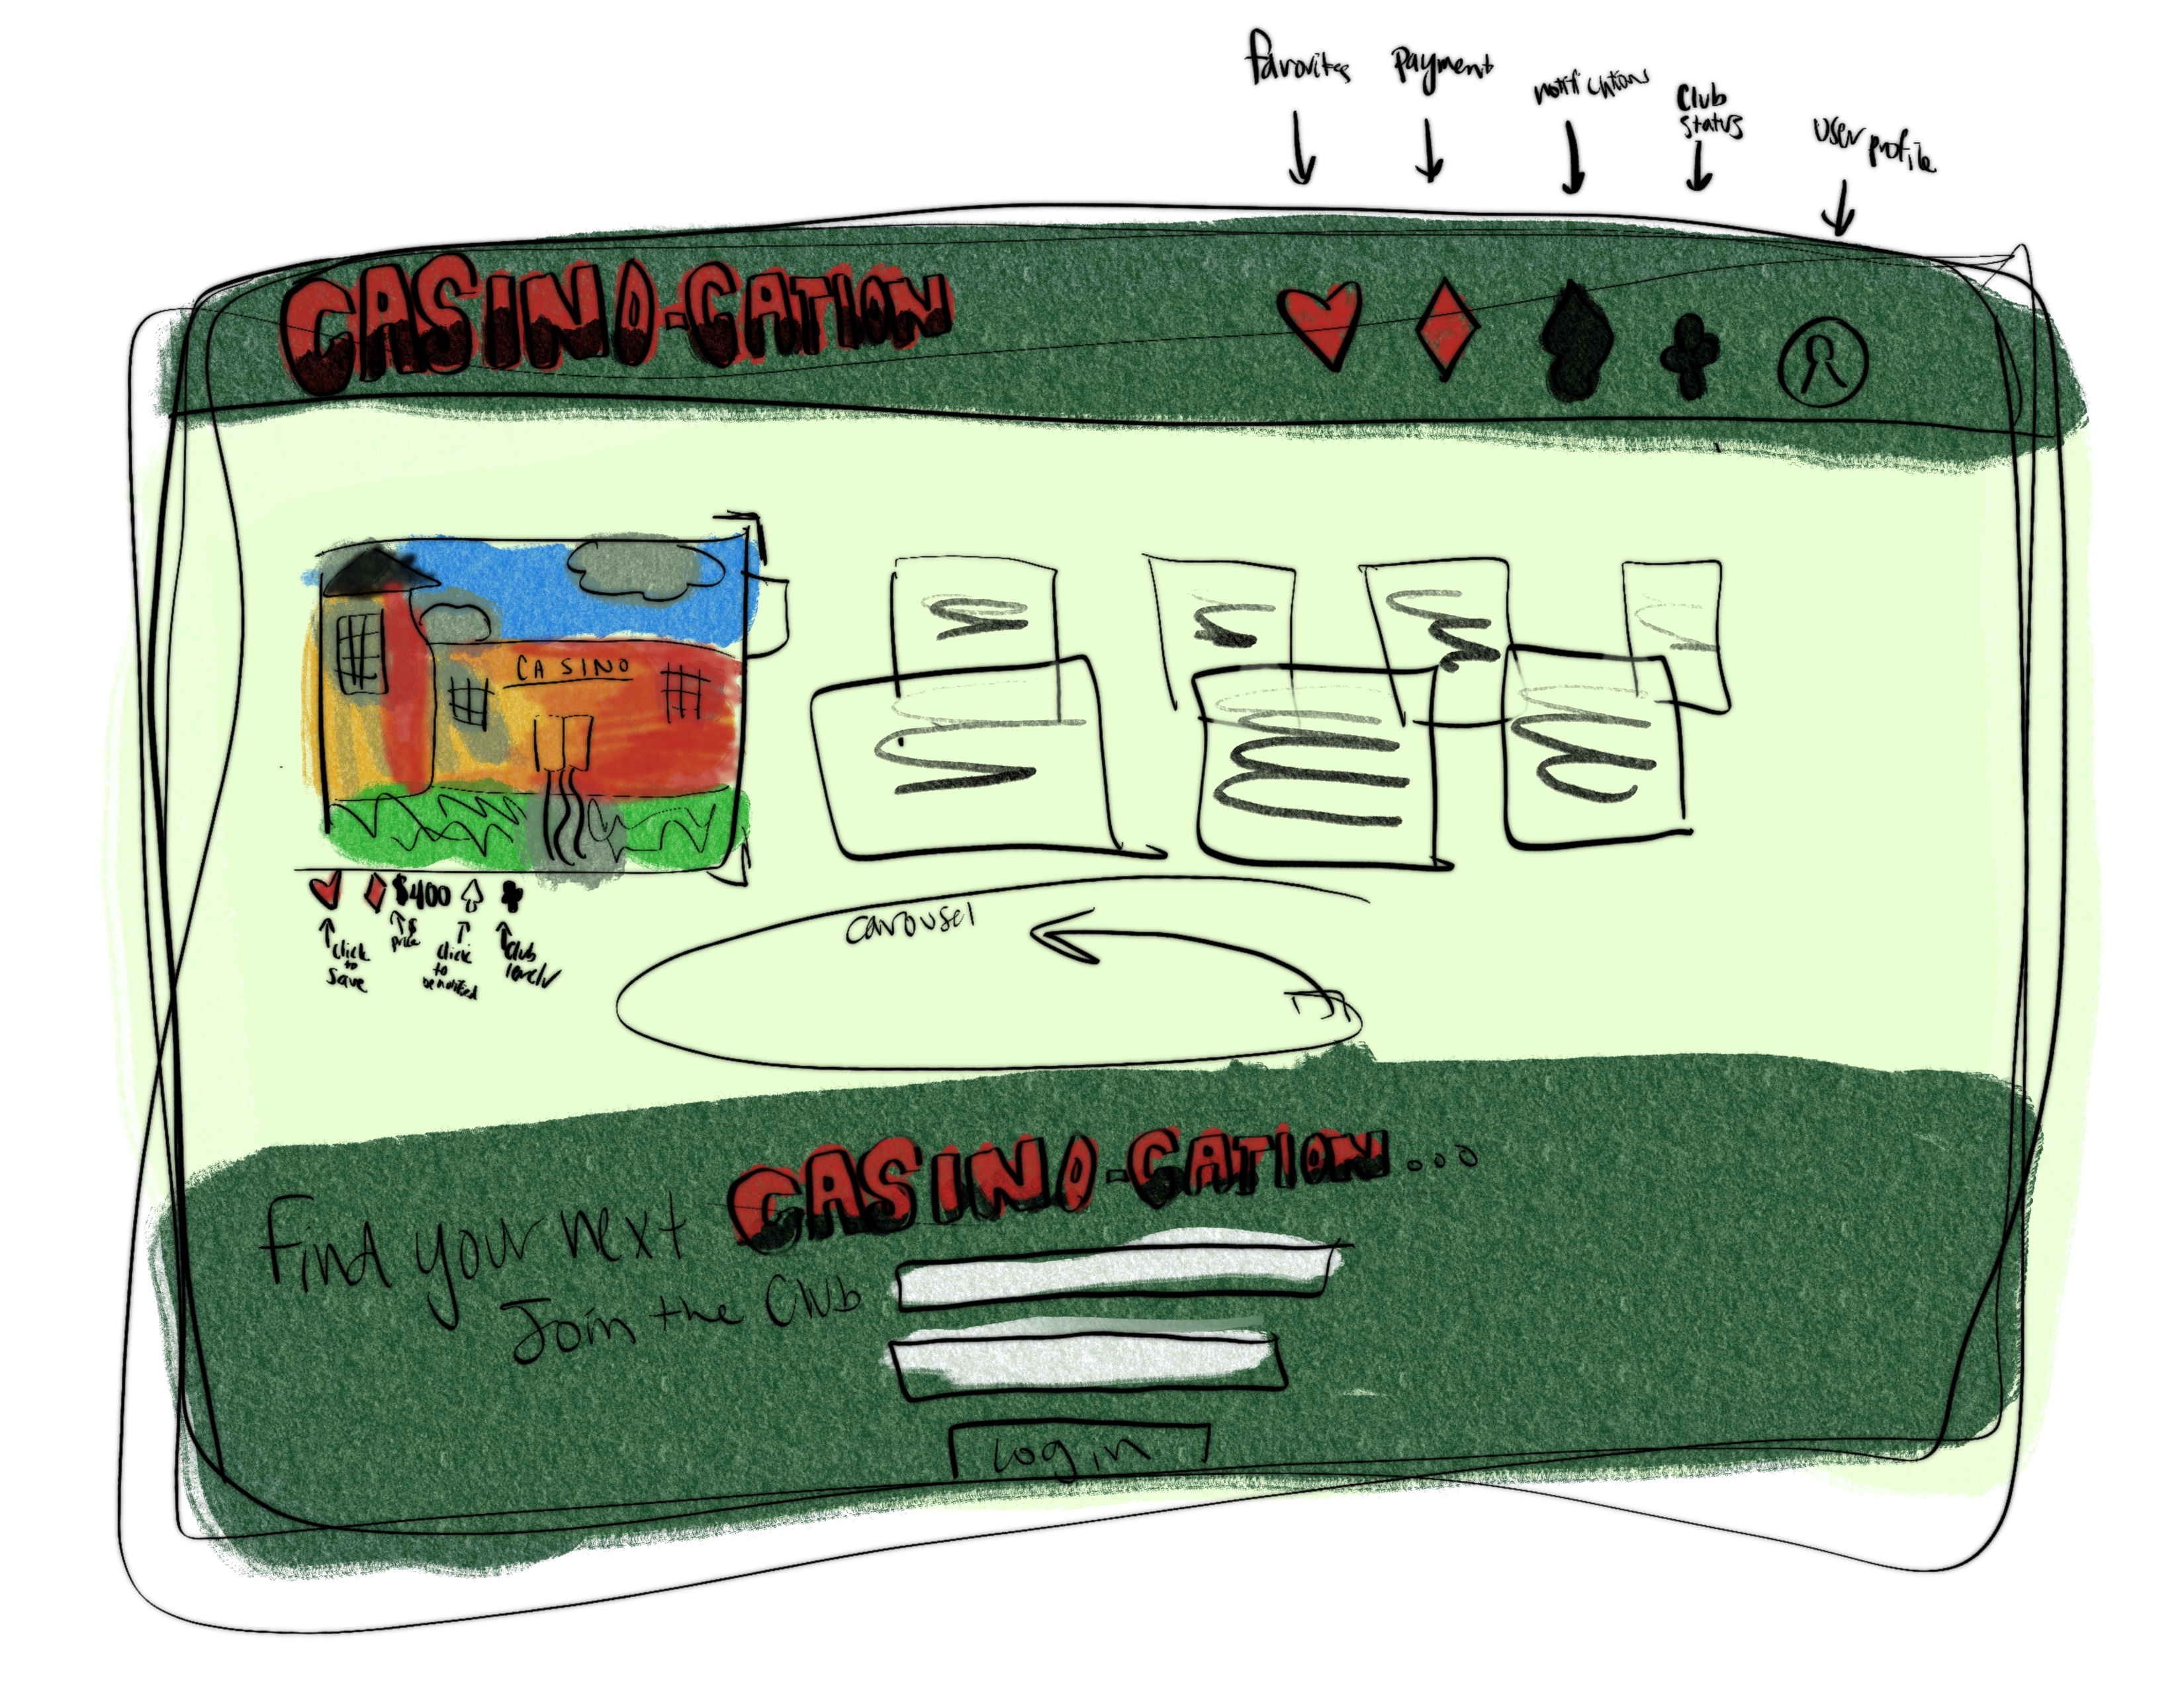 favorites
payment
notifications
Club
status
user profile
CASINO-CATION
CASINO
$400
click
to
save
$
price
click
to
be notified
Club
carousel
Find your next CASINO-CATION...
Join the Club
Log in